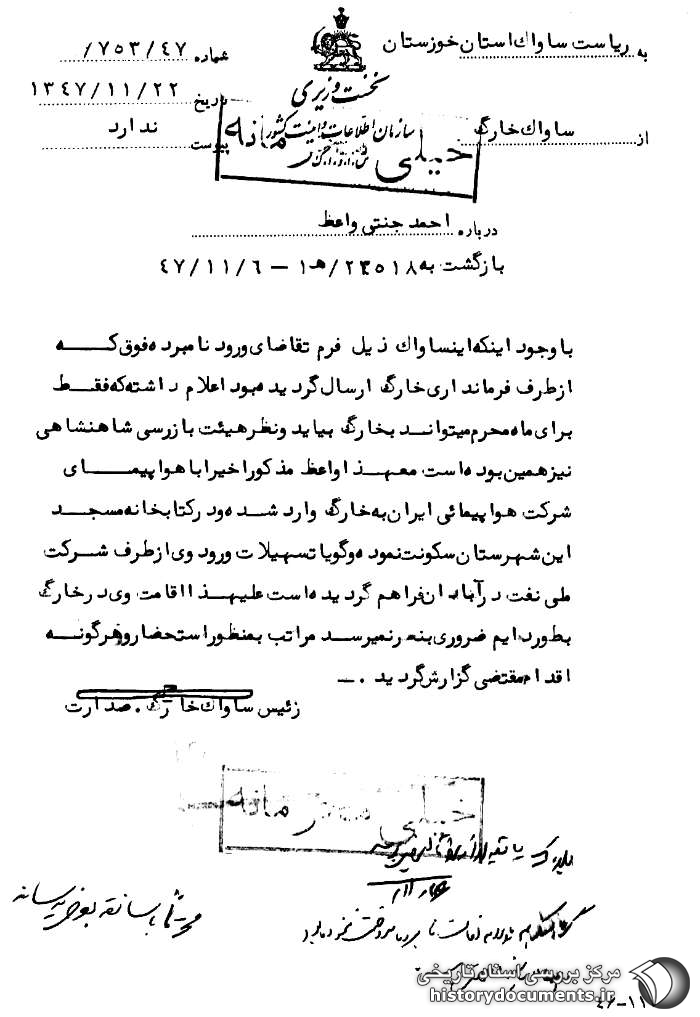 به ریاست ساواك استان خوزستان
نخست وزیری
سازمان اطلاعات و امنیت کشور
س.ا.و.ا.ک
شماره ۷۵۳/۴۷/
تاریخ ۱۳۴۷/۱۱/۲۲
از ساواك خارگ
پیوست ندارد
خیلی محرمانه
درباره احمد جنتی واعظ
بازگشت به ۲۳۵۱۸/ه۱ – ۴۷/۱۱/۶
با وجود اینکه اینساواك ذیل فرم تقاضای ورود نامبرده فوق که
از طرف فرمانداری خارگ ارسال گردیده بود اعلام داشته که فقط
برای ماه محرم میتواند بخارگ بیاید و نظر هیئت بازرسی شاهنشاهی
نیز همین بوده است معهذا واعظ مذکور اخیرا با هواپیمای
شرکت هواپیمائی ایران به خارگ وارد شده و در کتابخانه مسجد
این شهرستان سکونت نموده و گویا تسهیلات ورود وی از طرف شرکت
ملی نفت در آبادان فراهم گردیده است علیهذا اقامت وی در خارگ
بطور دایم ضروری بنظر نمیرسد مراتب بمنظور استحضار و هرگونه
اقدام مقتضی گزارش گردید . ـ
رئیس ساواك خارگ . صدارت
خیلی محرمانه
مرکز بررسی اسناد تاریخی
historydocuments.ir